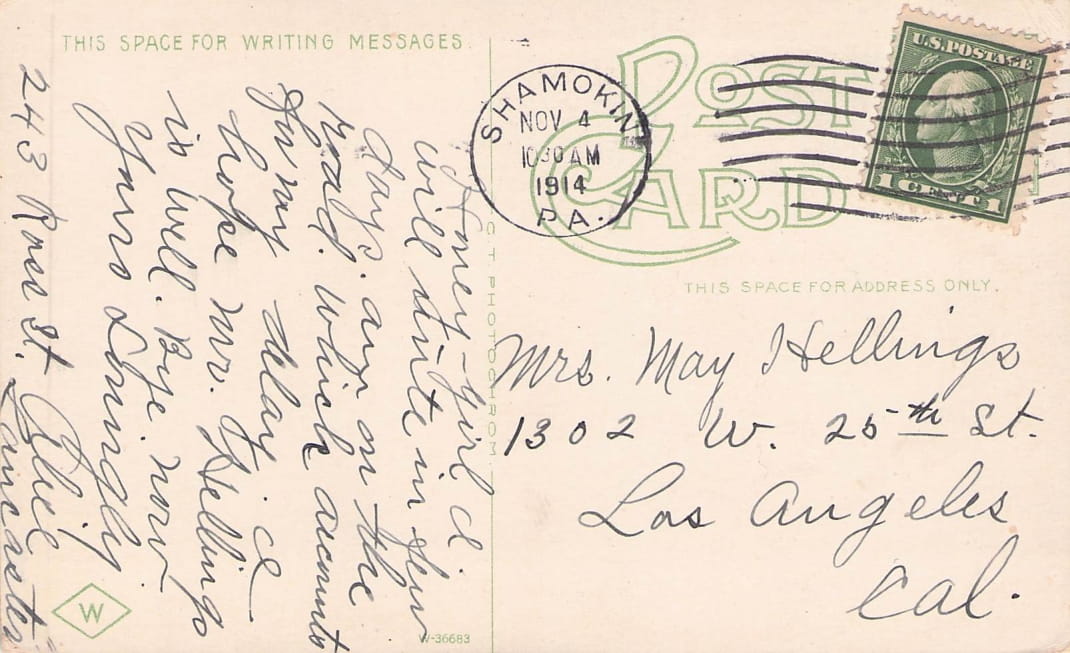 THIS SPACE FOR WRITING MESSAGES.
Honey-girl. I
will write in few
days. am on the
road. which accounts
for my delay. I
hope Mr. Hellings
is well. Bye. now
Yours Lovingly
243 Ross St.
Lancaster
W
W-36683
PHOTOCHROM.
POST CARD
SHAMOKIN
NOV 4
1030 AM
1914
PA.
U.S. POSTAGE
1 CENT 1
THIS SPACE FOR ADDRESS ONLY.
Mrs. May Hellings
1302 W. 25th St.
Los Angeles
Cal.